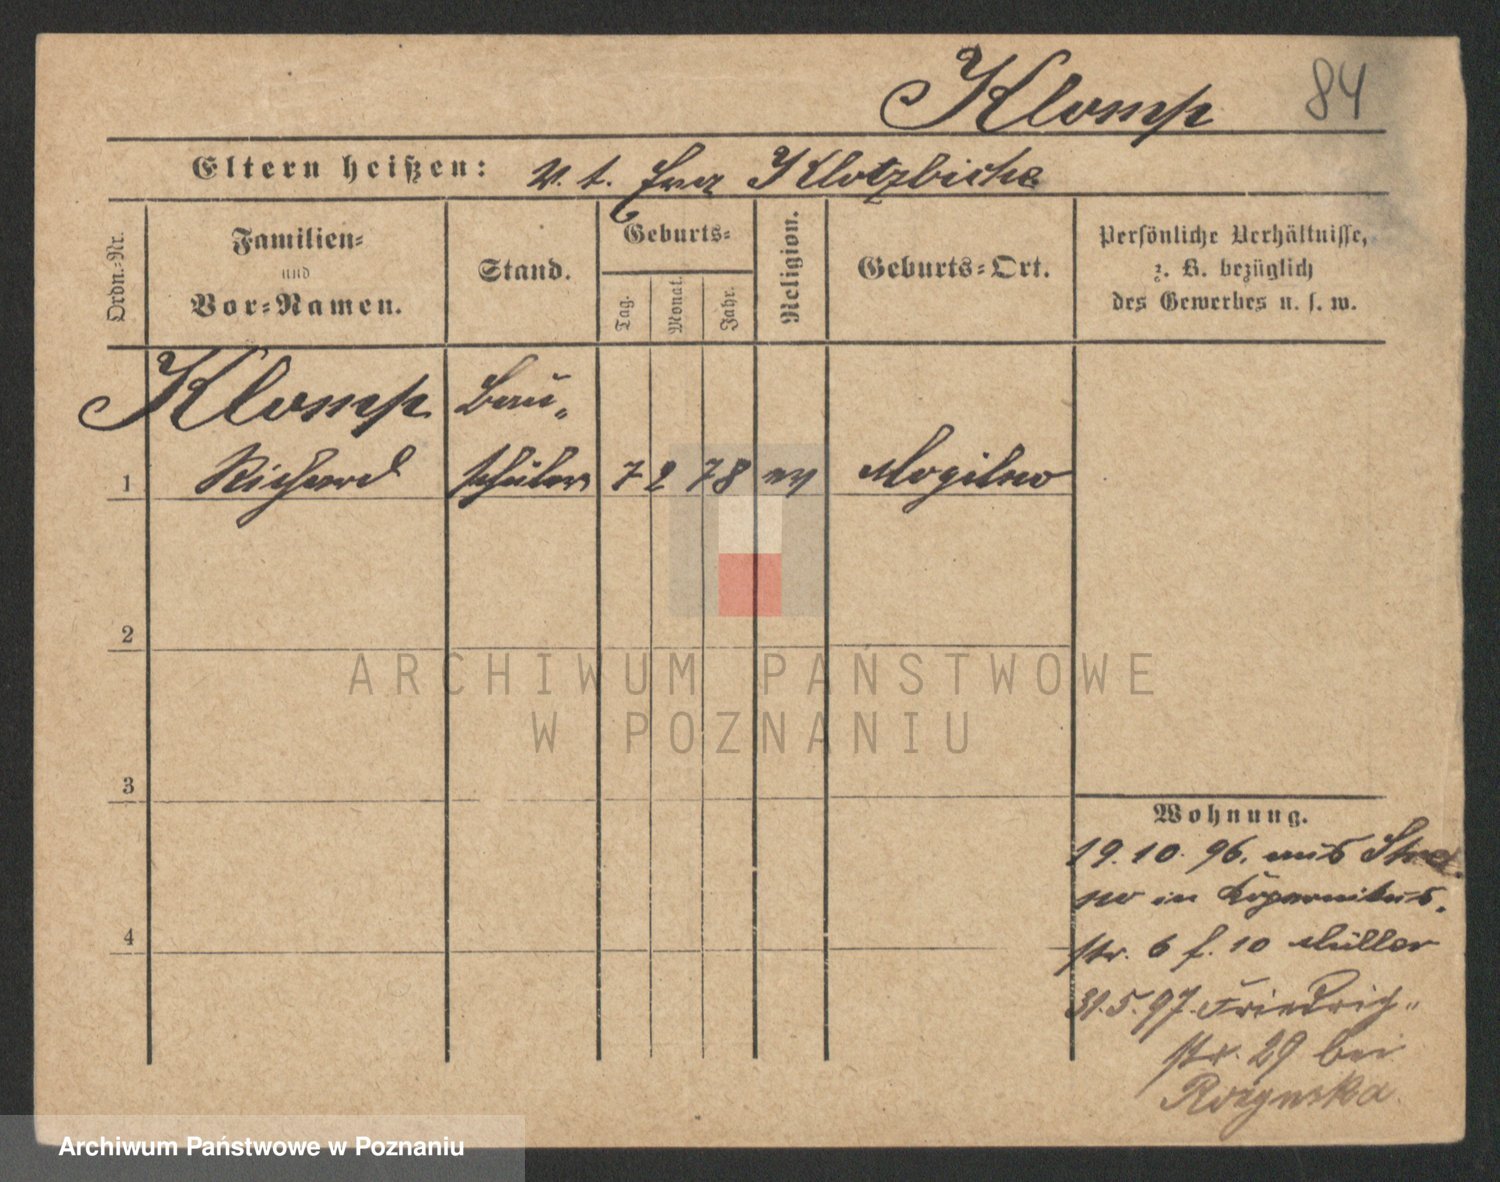 Klomp 84
Eltern heißen: V. t. Eva Klotzbiche
Ordn.-Nr.
Familien-
und
Vor-Namen.
Stand.
Geburts-
Tag. Monat. Jahr.
Religion.
Geburts-Ort.
Persönliche Verhältnisse,
z. B. bezüglich
des Gewerbes u. s. w.
Klomp Bau-
1 Richard schüler 7 2 78 ev Mogilno
2
3
4
Wohnung.
19.10.96. aus Strel
no in Kopernikus-
str. 6 b. 10 Müller
31.5.97. Friedrich-
str. 29 bei
ARCHIWUM PAŃSTWOWE
W POZNANIU
Archiwum Państwowe w Poznaniu